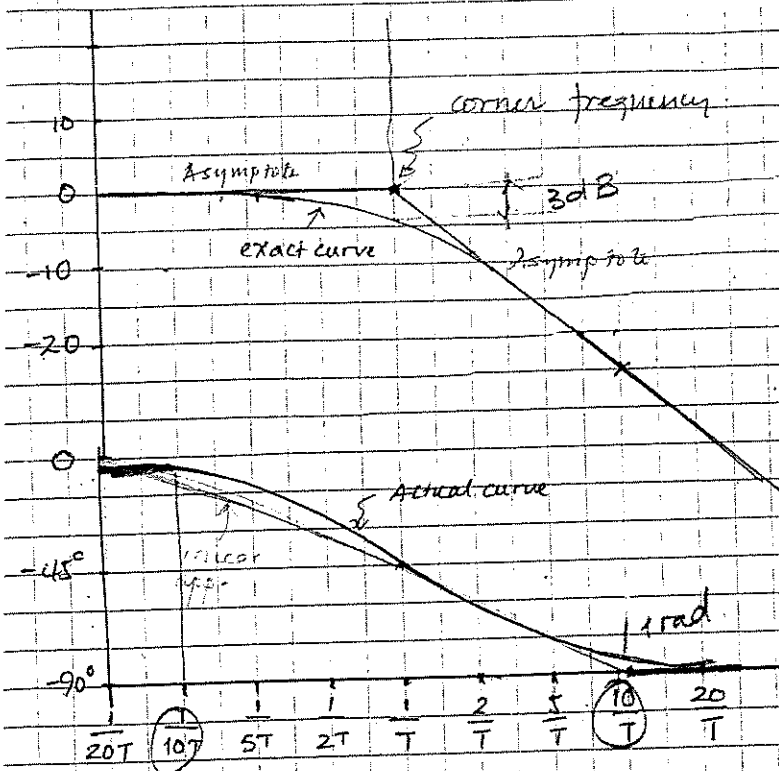 corner frequency
10
Asymptote
0
3dB
exact curve
Asymptote
-10
-20
0
Actual curve
linear
-45°
1 rad
-90°
1/20T 1/10T 1/5T 1/2T 1/T 2/T 5/T 10/T 20/T